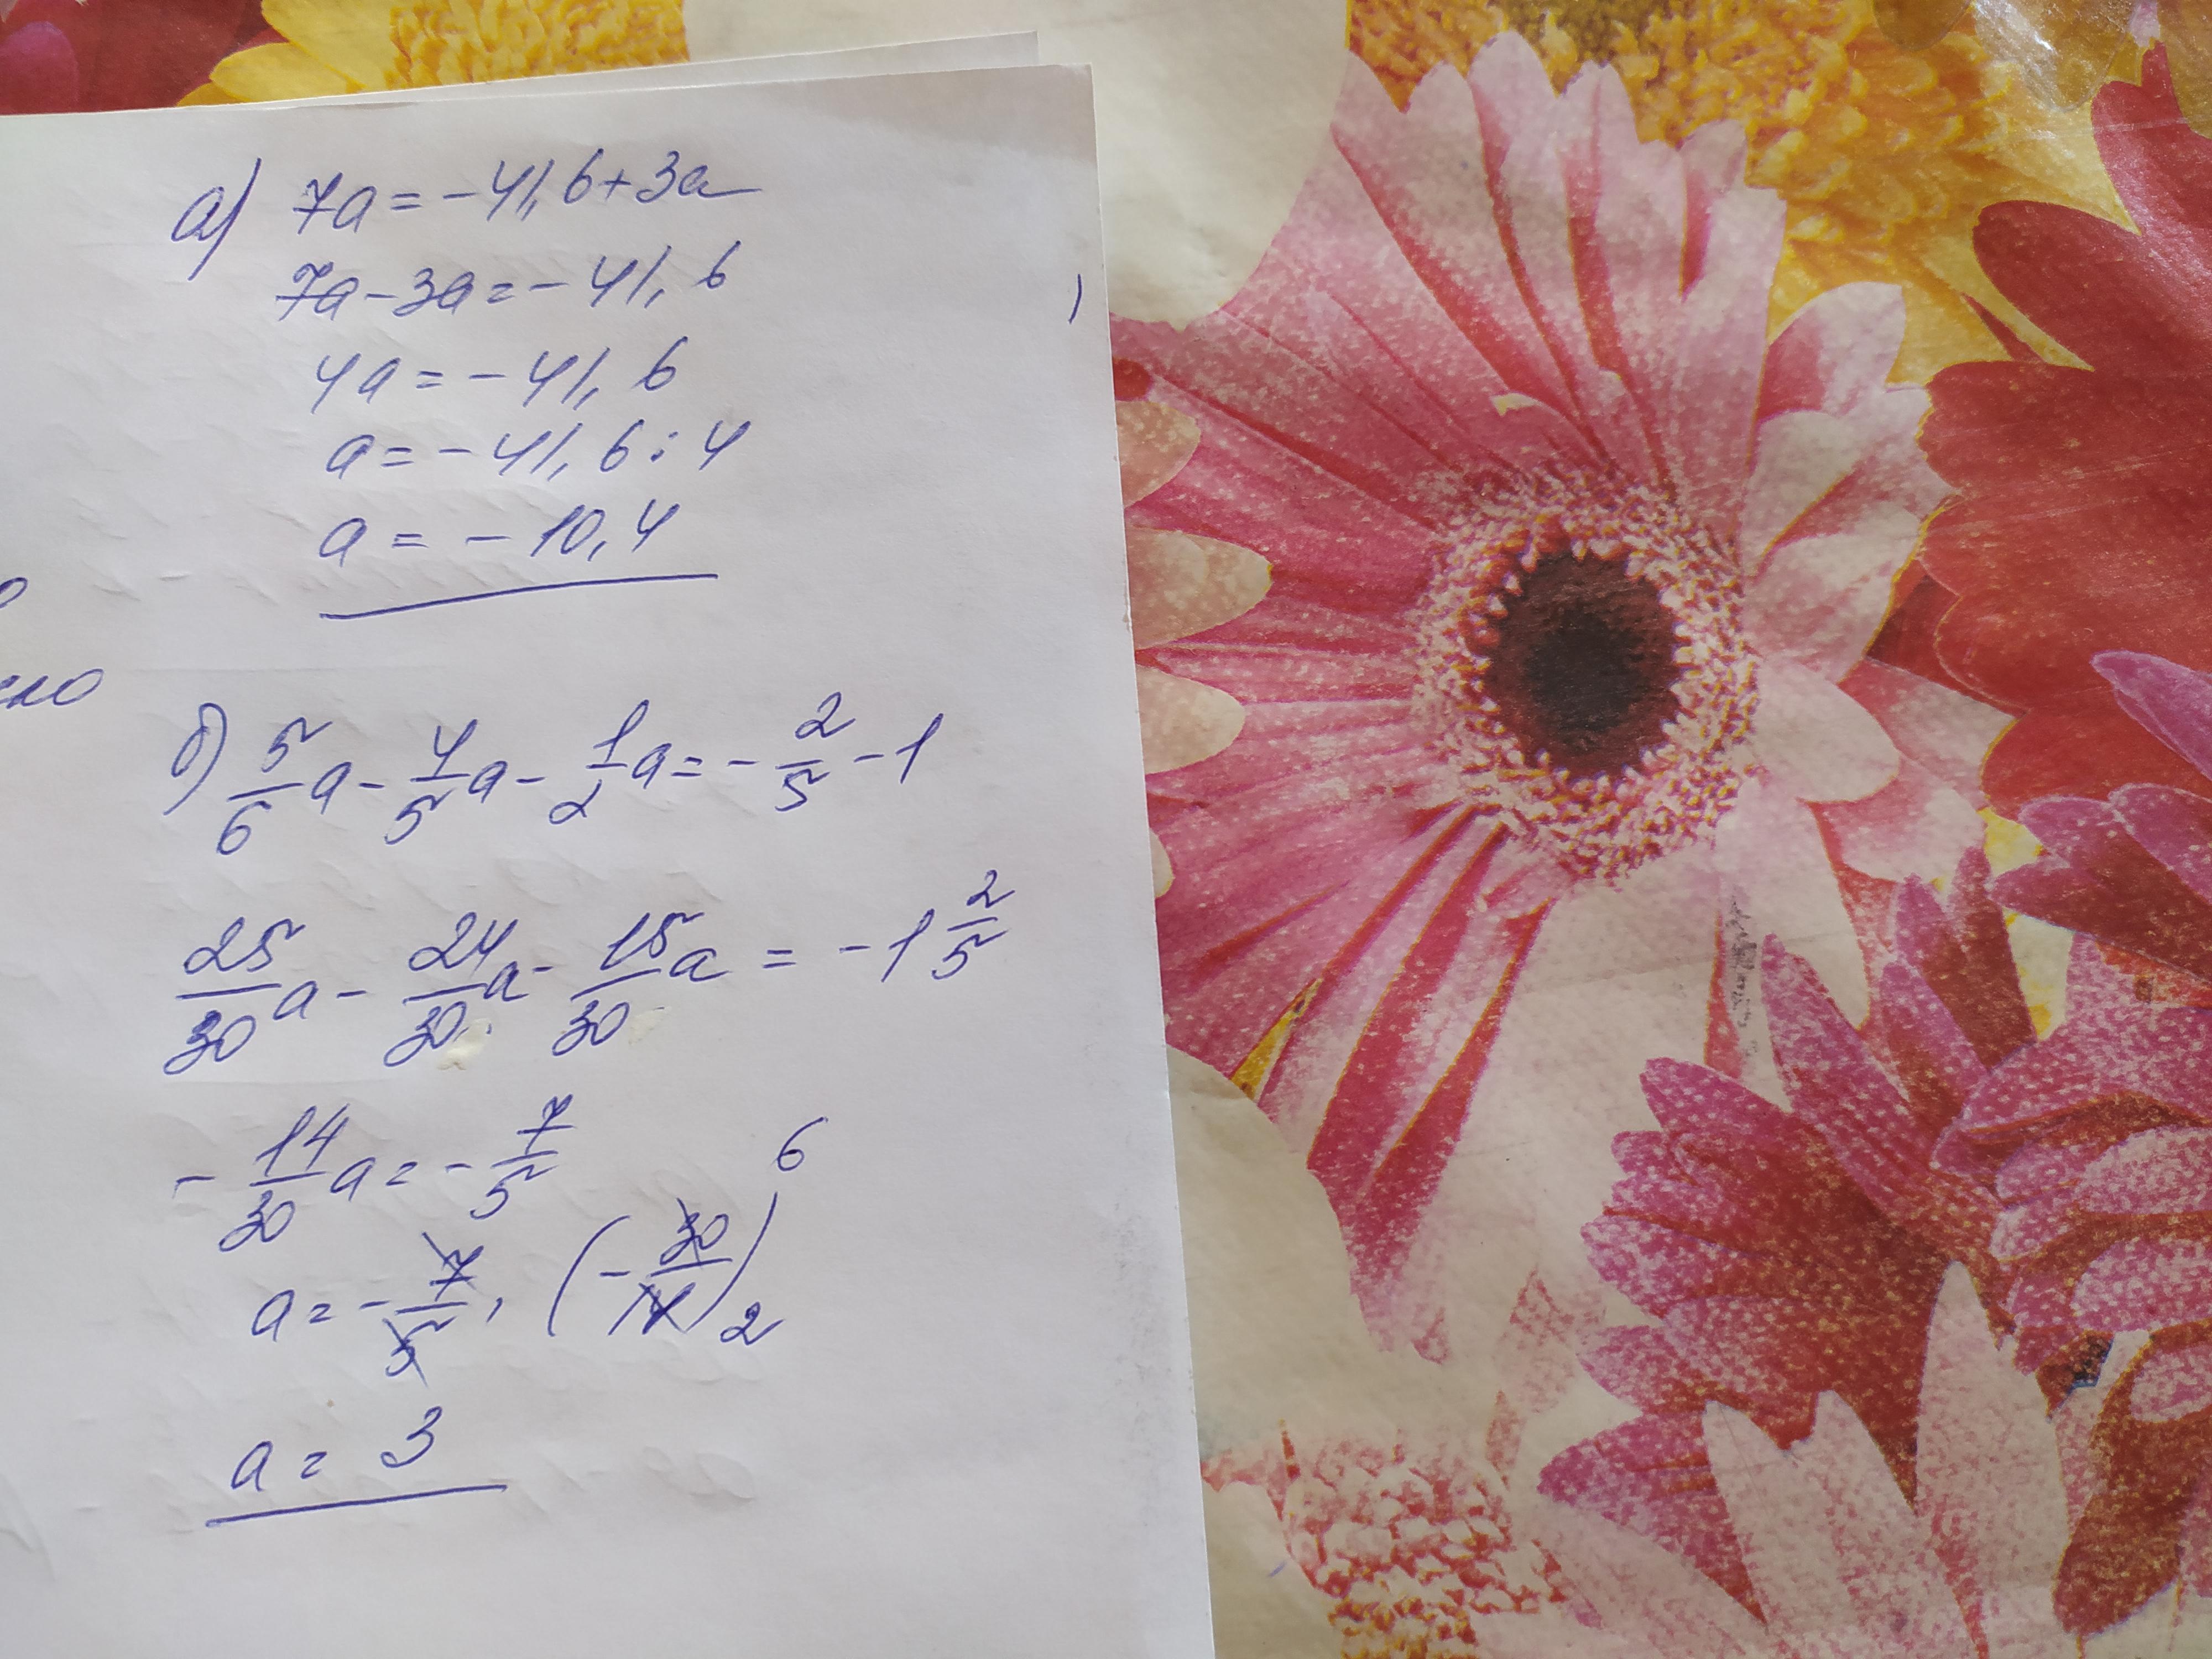 а) 7a = -41,6+3a
7a-3a=-41,6
4a=-41,6
a=-41,6:4
a = -10,4
б) 5/6 a - 4/5 a - 1/2 a = - 2/5 - 1
25/30 a - 24/30 a - 15/30 a = -1 2/5
- 14/30 a = - 7/5
a = - 7/5 · (- 30/14) 6 2
a = 3